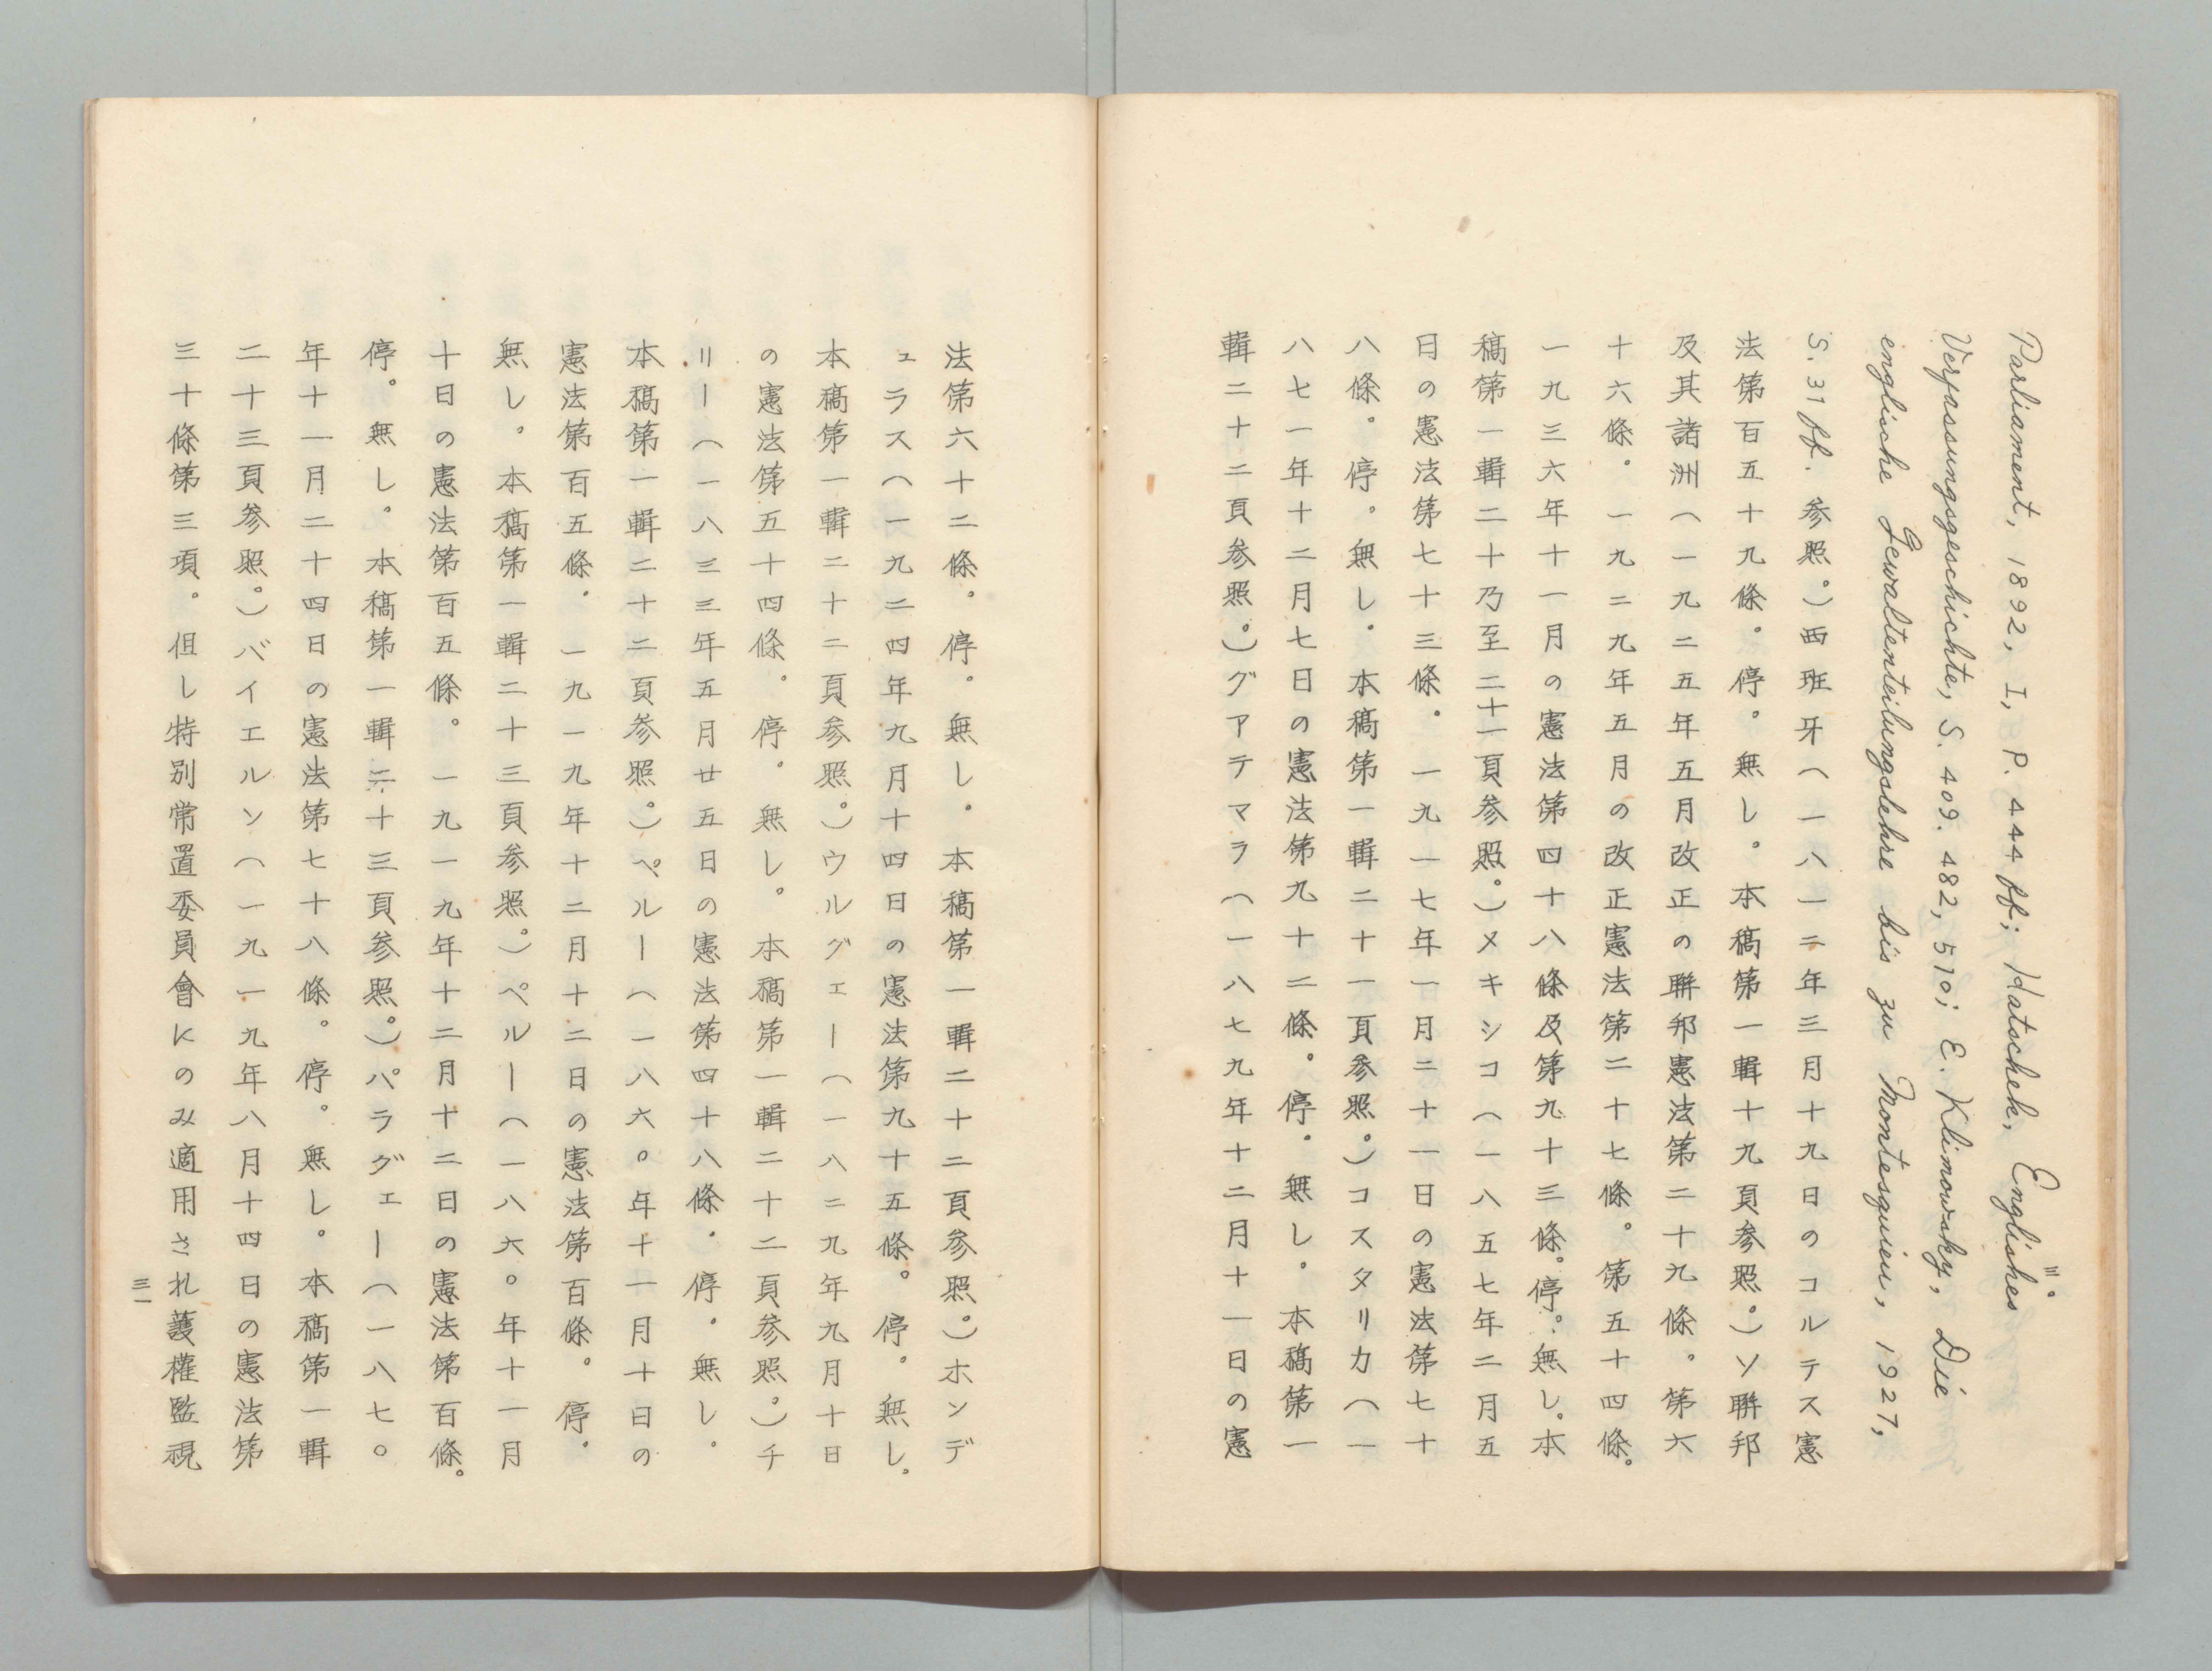 三〇
Parliament, 1892, I, P. 444 ff; Hatschek, Englishes
Verfassungsgeschichte, S. 409. 482, 510; E. Klimowsky, Die
englische Gewaltenteilungslehre bis zu Montesquieu, 1927,
S. 31 ff. 参照。）西班牙（一八一二年三月十九日のコルテス憲
法第百五十九條。停。無し。本稿第一輯十九頁参照。）ソ聯邦
及其諸洲（一九二五年五月改正の聯邦憲法第二十九條。第六
十六條。一九二九年五月の改正憲法第二十七條。第五十四條。
一九三六年十一月の憲法第四十八條及第九十三條。停。無し。本
稿第一輯二十乃至二十一頁参照。）メキシコ（一八五七年二月五
日の憲法第七十三條。一九一七年一月二十一日の憲法第七十
八條。停。無し。本稿第一輯二十一頁参照。）コスタリカ（一
八七一年十二月七日の憲法第九十二條。停。無し。本稿第一
輯二十二頁参照。）グアテマラ（一八七九年十二月十一日の憲
法第六十二條。停。無し。本稿第一輯二十二頁参照。）ホンデ
ュラス（一九二四年九月十四日の憲法第九十五條。停。無し。
本稿第一輯二十二頁参照。）ウルグェー（一八二九年九月十日
の憲法第五十四條。停。無し。本稿第一輯二十二頁参照。）チ
リー（一八三三年五月廿五日の憲法第四十八條。停。無し。
本稿第一輯二十二頁参照。）ペルー（一八六〇年十一月十日の
憲法第百五條。一九一九年十二月十二日の憲法第百條。停。
無し。本稿第一輯二十三頁参照。）ペルー（一八六〇年十一月
十日の憲法第百五條。一九一九年十二月十二日の憲法第百條。
停。無し。本稿第一輯二十三頁参照。）パラグェー（一八七〇
年十一月二十四日の憲法第七十八條。停。無し。本稿第一輯
二十三頁参照。）バイエルン（一九一九年八月十四日の憲法第
三十條第三項。但し特別常置委員會にのみ適用され護權監視
三一